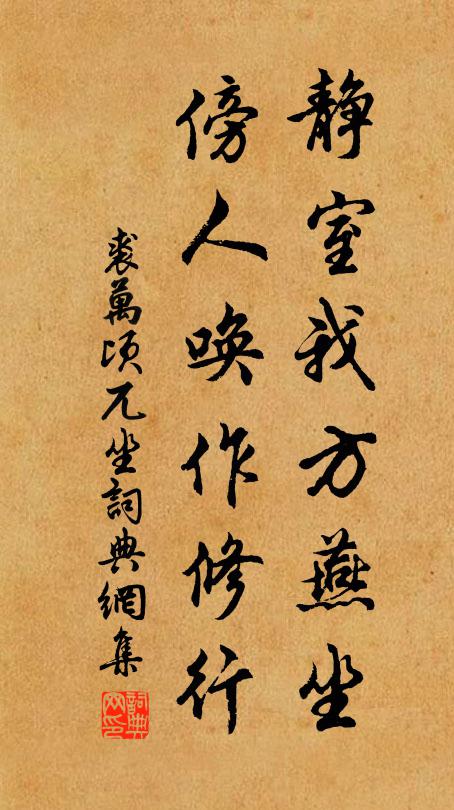 静室我方燕坐
傍人唤作修行
裘萬頃兀坐詞典網集
詞典网印